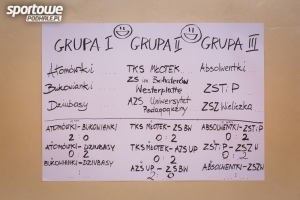 sportowe
PODHALE.PL
GRUPA I GRUPA II GRUPA III
Atomówki TKS MŁOTEK Absolwentki
Bukowianki ZS im Bohaterów Westerplatte ZST.P
Dziubasy AZS Uniwersytet Pedagogiczny ZSZ Wieliczka
ATOMÓWKI-BUKOWIANKI TKS MŁOTEK-ZSBW ABSOLWENTKI-ZST.P
2 0 0 : 2 0 : 2
ATOMÓWKI-DZIUBASY TKS MŁOTEK-AZS UP ZST.P-ZSZW
0 2 0 : 2
BUKOWIANKI-DZIUBASY AZS UP-ZSBW ABSOLWENTKI-ZSZW
2 : 0